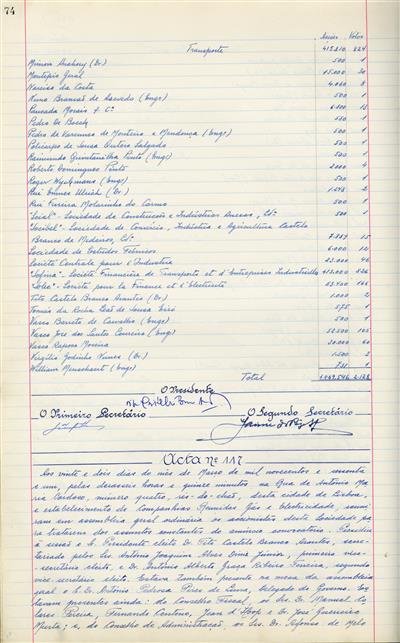 74
Acções Votos
Transporte 419.210 824
Mimon Anahory (Dr) 500 1
Montepio Geral 15.000 30
Narciso da Costa 4.000 8
Nuno Brancas de Azevedo (Engº) 500 1
Pancada Morais & Cª
Pedro de 500 1
Pedro de Varennes de Monteiro e Mendonça (Engº) 500 1
Policarpo de Sousa Dutra Salgado 500 1
Raimundo Quintanilha Pinto (Engº) 500 1
Roberto Domingues Pinto 2000 4
Roger Wyckmans (Engº) 500 1
Rui Ennes Ulrich (Dr) 2
Rui Ferreira Molarinho do Carmo 500 1
"Social" - Sociedade de Construções e Indústrias Anexas, Ldª 500 1
Sociedade de Comércio, Indústria e Agricultura Castelo
Branco de Medeiros, Ldª 15
Sociedade de Estudos Técnicos 6.000 12
Société Centrale pour l'Industrie 46
"Sofina" - Société Financière de Transports et d'Entreprises Industrielles
- Société pour la Finance et l'Electricité
Tito Castelo Branco Arantes (Dr) 1.000 2
Tomás da Rocha Leão de Sousa 1
Vasco Barreto de Carvalho (Engº) 500 1
Vasco José dos Santos Carreira (Engº) 52.500 105
Vasco Raposo Moreira 20.000 40
Virgílio Godinho Nunes (Dr) 1.500 2
William (Engº) 1
Total
O Presidente
O Primeiro Secretário O Segundo Secretário
Acta Nº 117
Aos vinte e dois dias do mês de Março de mil novecentos e sessenta
e um, pelas dezasseis horas e quinze minutos na Rua de António Ma-
ria Cardoso, número quatro, rés-do-chão, desta cidade de Lisboa,
e estabelecimento de Companhias Reunidas Gás e Electricidade, reuni-
ram em assembleia geral ordinária os accionistas desta Sociedade, pa-
ra tratarem dos assuntos constantes do anúncio convocatório. Presidiu
à sessão o Sr. Presidente eleito Dr. Tito Castelo Branco Arantes, secre-
tariado pelos Srs. António Joaquim Alves Diniz Júnior, primeiro vice-
-secretário eleito, e Dr. António Alberto Graça Ribeiro Ferreira, segundo
vice-secretário eleito. Estava também presente na mesa da assembleia
geral o Sr. Dr. António Pedrosa Pires de Lima, Delegado do Governo. Es-
tavam presentes ainda: do Conselho Fiscal, os Srs. Dr. Manuel Co-
lares Pereira, Fernando Centeno, Jean d'Hoop e Dr. José Guerreiro
Murta; e, do Conselho de Administração, os Srs. Dr. Ildefonso de Melo